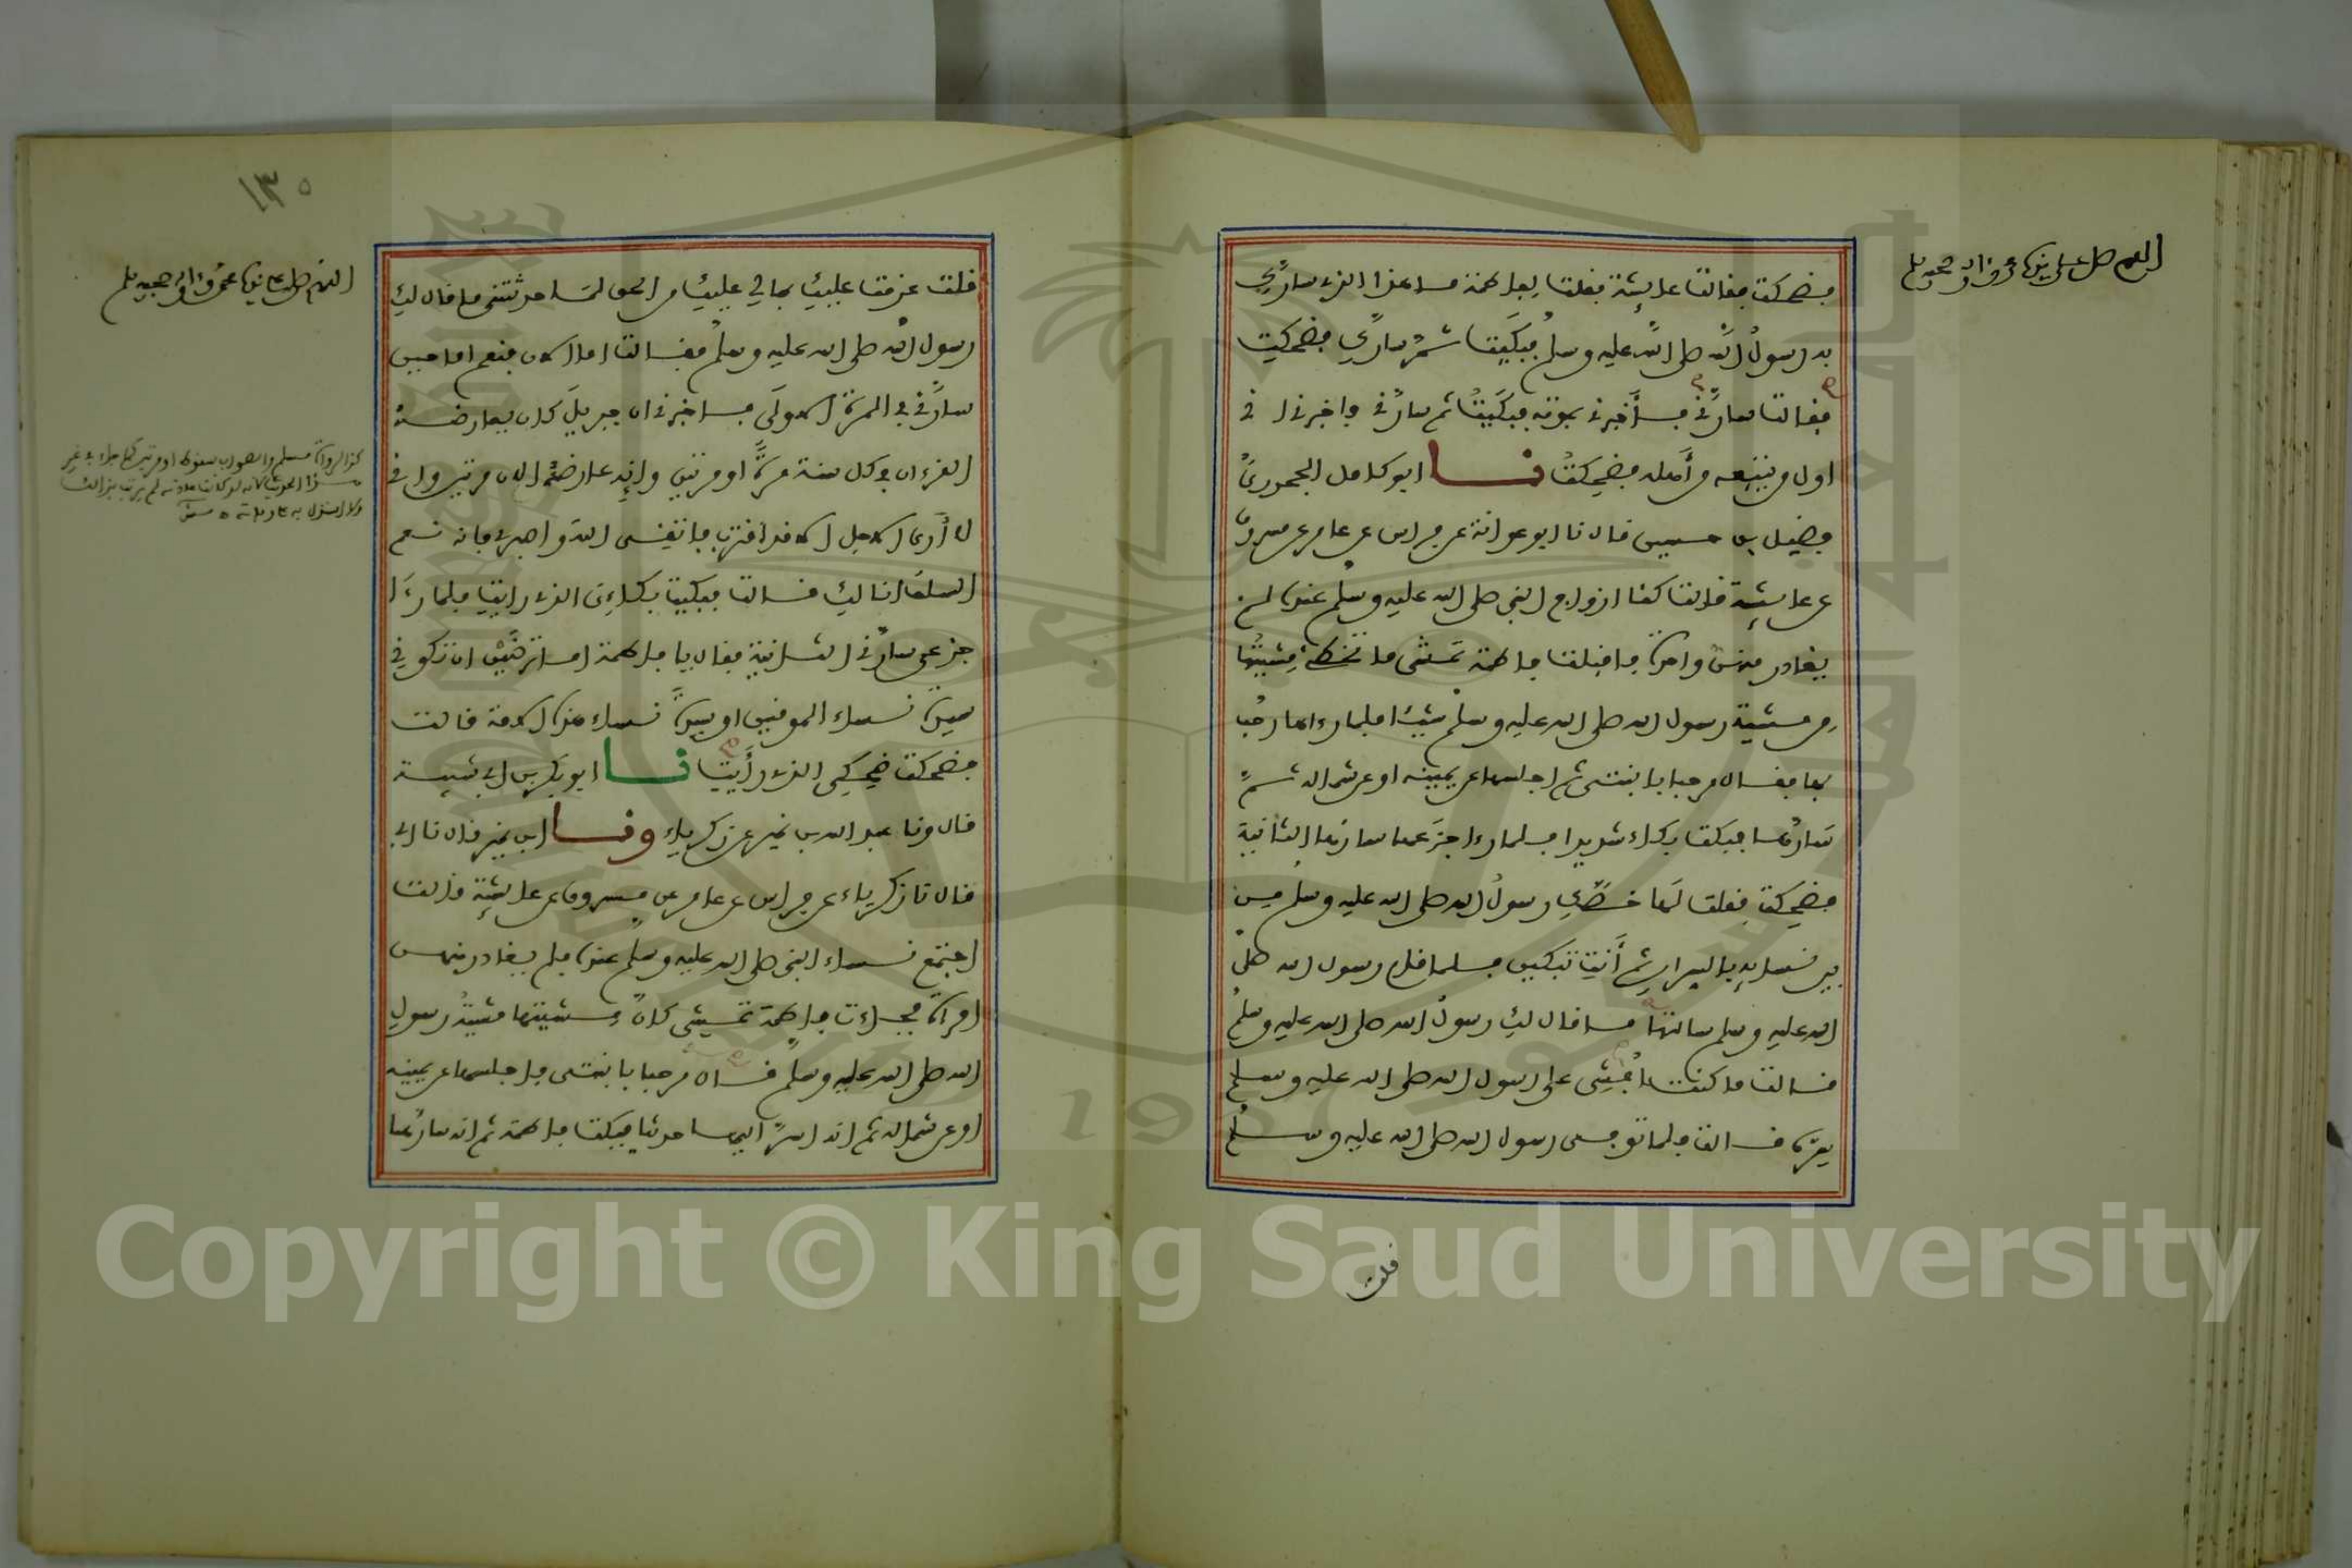 اللهم صل على سيدنا محمد وآله وصحبه وسلم
فضحكت فقالت عايشة فقلت لفاطمة ما هذا الذي سارك
به رسول الله صلى الله عليه وسلم فبكيت ثم سارك فضحكت
فقالت سارني فأخبرني بموته فبكيت ثم سارني فاخبرني اني
اول من يتبعه من أهله فضحكت نا ابو كامل الجحدري
فضيل بن حسين قال نا ابو عوانة عن فراس عن عامر عن مسروق
عن عايشة قالت كنا ازواج النبي صلى الله عليه وسلم عنده لم
يغادر منهن واحدة فاقبلت فاطمة تمشي ما تخطئ مشيتها
من مشية رسول الله صلى الله عليه وسلم شيئا فلما رءاها رحب
بها فقال مرحبا بابنتي ثم اجلسها عن يمينه او عن شماله ثم
سارها فبكت بكاء شديدا فلما رءا جزعها سارها الثانية
فضحكت فقلت لها خصك رسول الله صلى الله عليه وسلم من
بين نسايه بالسرار ثم أنت تبكين فلما قام رسول الله صلى
الله عليه وسلم سالتها ما قال لك رسول الله صلى الله عليه وسلم
قالت ما كنت افشي على رسول الله صلى الله عليه وسلم
سره قالت فلما توفي رسول الله صلى الله عليه وسلم
قلت
١٣٥
اللهم صل على سيدنا محمد وآله وصحبه وسلم
قلت عزمت عليك بما لي عليك من الحق لما حدثتني ما قال لك
رسول الله صلى الله عليه وسلم فقالت اما الان فنعم اما حين
سارني في المرة الاولى فاخبرني ان جبريل كان يعارضه
القرءان في كل سنة مرة او مرتين وإنه عارضه الان مرتين واني
لا أرى الاجل الا قد اقترب فاتقي الله واصبري فانه نعم
السلف انا لك قالت فبكيت بكاءي الذي رايت فلما رءا
جزعي سارني الثانية فقال يا فاطمة اما ترضين ان تكوني
سيدة نساء المومنين او سيدة نساء هذه الامة قالت
فضحكت ضحكي الذي رأيت نا ابو بكر بن ابي شيبة
قال ونا عبد الله بن نمير عن زكرياء ونا ابن نمير قال نا ابي
قال نا زكرياء عن فراس عن عامر عن مسروق عن عايشة قالت
اجتمع نساء النبي صلى الله عليه وسلم عنده فلم يغادر منهن
امراة فجاءت فاطمة تمشي كان مشيتها مشية رسول
الله صلى الله عليه وسلم فقال مرحبا بابنتي فاجلسها عن يمينه
او عن شماله ثم انه اسر اليها حديثا فبكت فاطمة ثم انه سارها